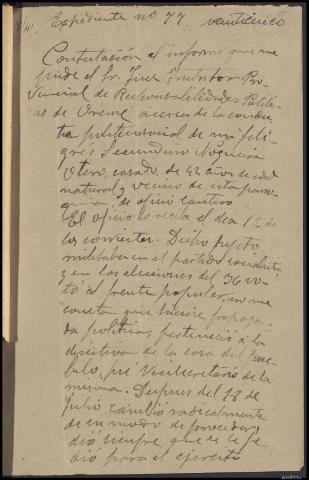 Expediente nº 77 veinticinco
Contestación al informe que me
pide el Sr. Juez Instructor Pro-
vincial de Responsabilidades Políti-
cas de Orense acerca de la conduc-
ta políticosocial de mi feli-
grés Secundino Nogueira
Otero, casado, de 42 años de edad
natural y vecino de esta parro-
quia, de oficio cantero.
El oficio lo recibí el día 12 de
los corrientes. Dicho sujeto
militaba en el partido socialista
y en las elecciones del 36 vo-
tó al frente popular, no me
consta que hiciese propagan-
da política, perteneció a la
directiva de la casa del Pue-
blo, fué Vicesecretario de la
misma. Despues del 18 de
Julio cambió radicalmente
de su modo de proceder y
dió siempre que se le pe-
dió para el ejército